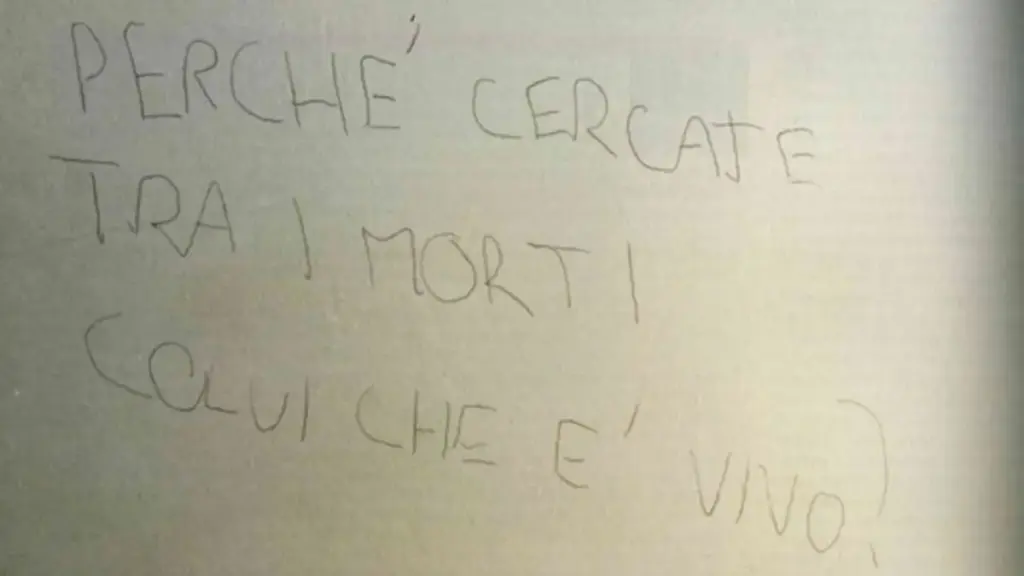 PERCHE' CERCATE
TRA I MORTI
COLUI CHE E' VIVO?